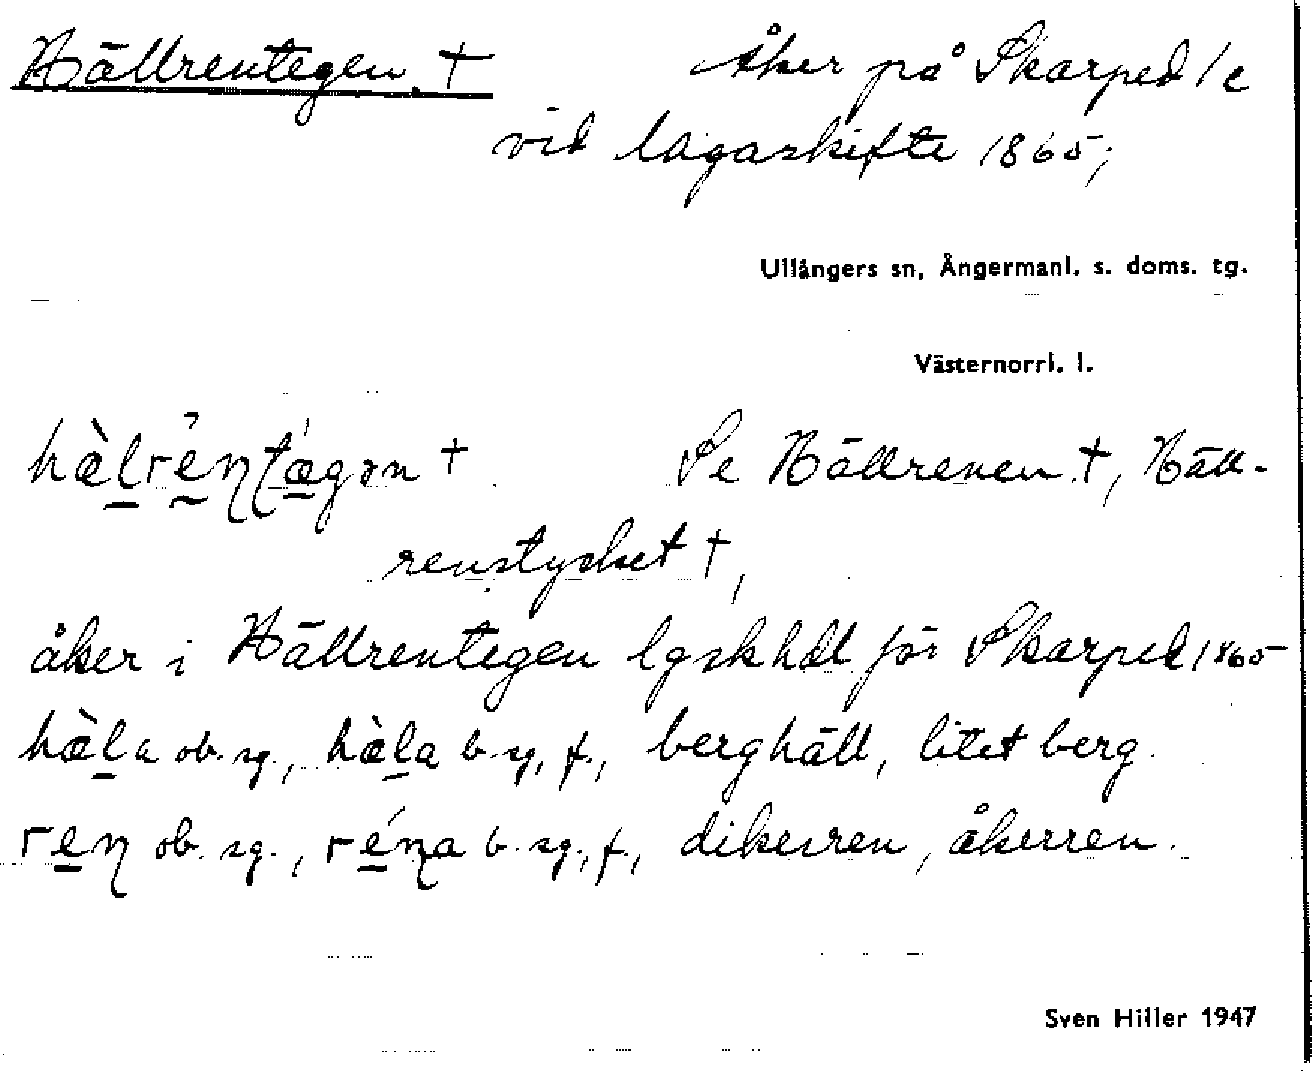 Hällrentegen † åker på Skarped 1/c
vid lagaskifte 1865;
Ullångers sn, Ångermanl. s. doms. tg.
Västernorrl. l.
hæ̀lrènta̋gən † Se Hällrenen †, Häll-
renstycket †,
åker i Hällrentegen lgskhdl för Skarped 1865
hæ̀la ob. sg., hæ̀la b. sg., f., berghäll, litet berg.
ren ob. sg., réna b. sg., f., dikesren, åkerren.
Sven Hiller 1947